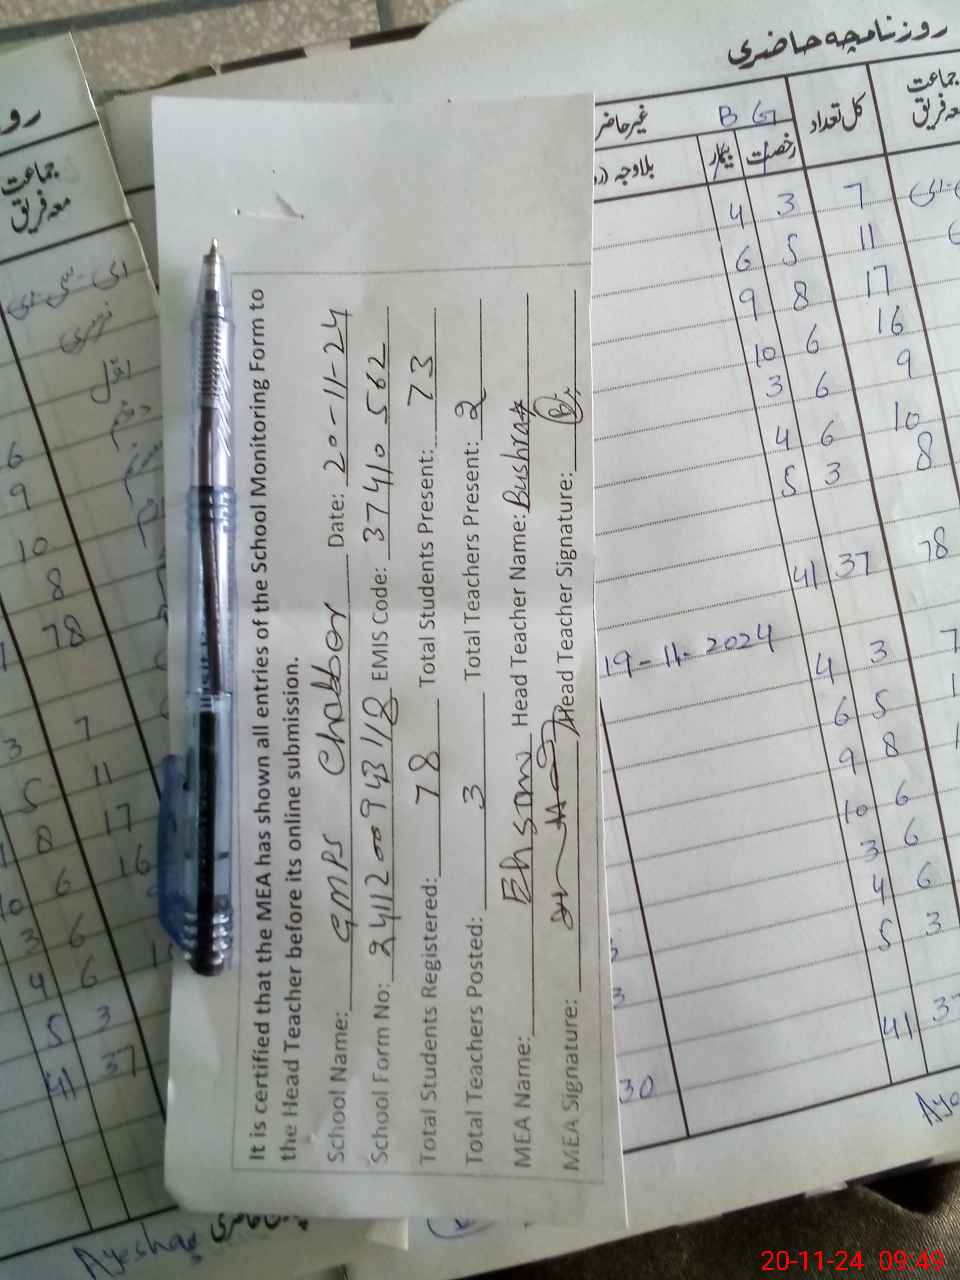 It is certified that the MEA has shown all entries of the School Monitoring Form to
the Head Teacher before its online submission.
School Name: GMPS Chabbar Date: 20-11-24
School Form No: EMIS Code: 37410 562
Total Students Registered: 78 Total Students Present: 73
Total Teachers Posted: 3 Total Teachers Present: 2
MEA Name: Ehsan Head Teacher Name: Bushra
MEA Signature: Head Teacher Signature:
روزنامچہ حاضری
جماعت معہ فریق
کل تعداد
B G
غیر حاضر
رخصت
بیمار
بلاوجہ
7 3 4
11 5 6
17 8 9
16 6 10
9 6 3
10 6 4
8 3 5
78 37 41
19-11-2024
3 4
5 6
8 9
6 10
6 3
6 4
3 5
41
30
جماعت
معہ فریق
اول
دوئم
6
9
10
8
78
7
11 5
17 8
16 6
6 3
6 4
3 5
37 41
Ayesha
20-11-24 09:49